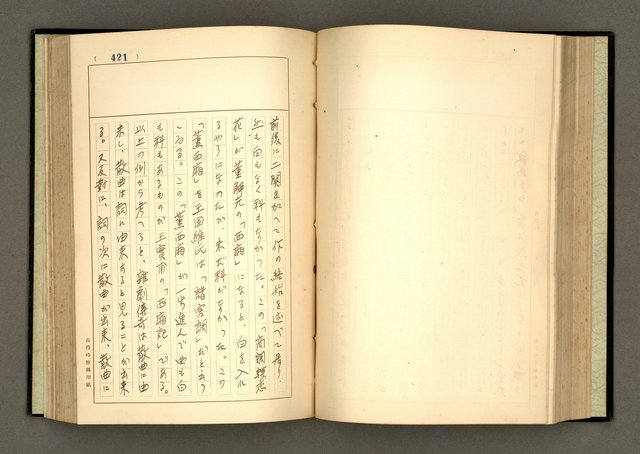 ( 421 )
前後に二闋を加へて作の結始を述べて居り、
曲も白もなく科もなかつた。この「商調蝶恋
花」が董解元の「西廂」になると、白を入れ
るやうになつたが、未だ科がなかつた。この
「董西廂」を王国維氏は「諸宮調」だと云つ
てゐる。この「董西廂」が一歩進んで曲も白
も科もあるものが王實甫の「西廂記」である。
以上の例から考へると、雜劇傳奇は散曲に由
来し、散曲は詞に由来すると見ることが出来
る。又反對に、詞の次に散曲が出来、散曲に
長澤時基用紙